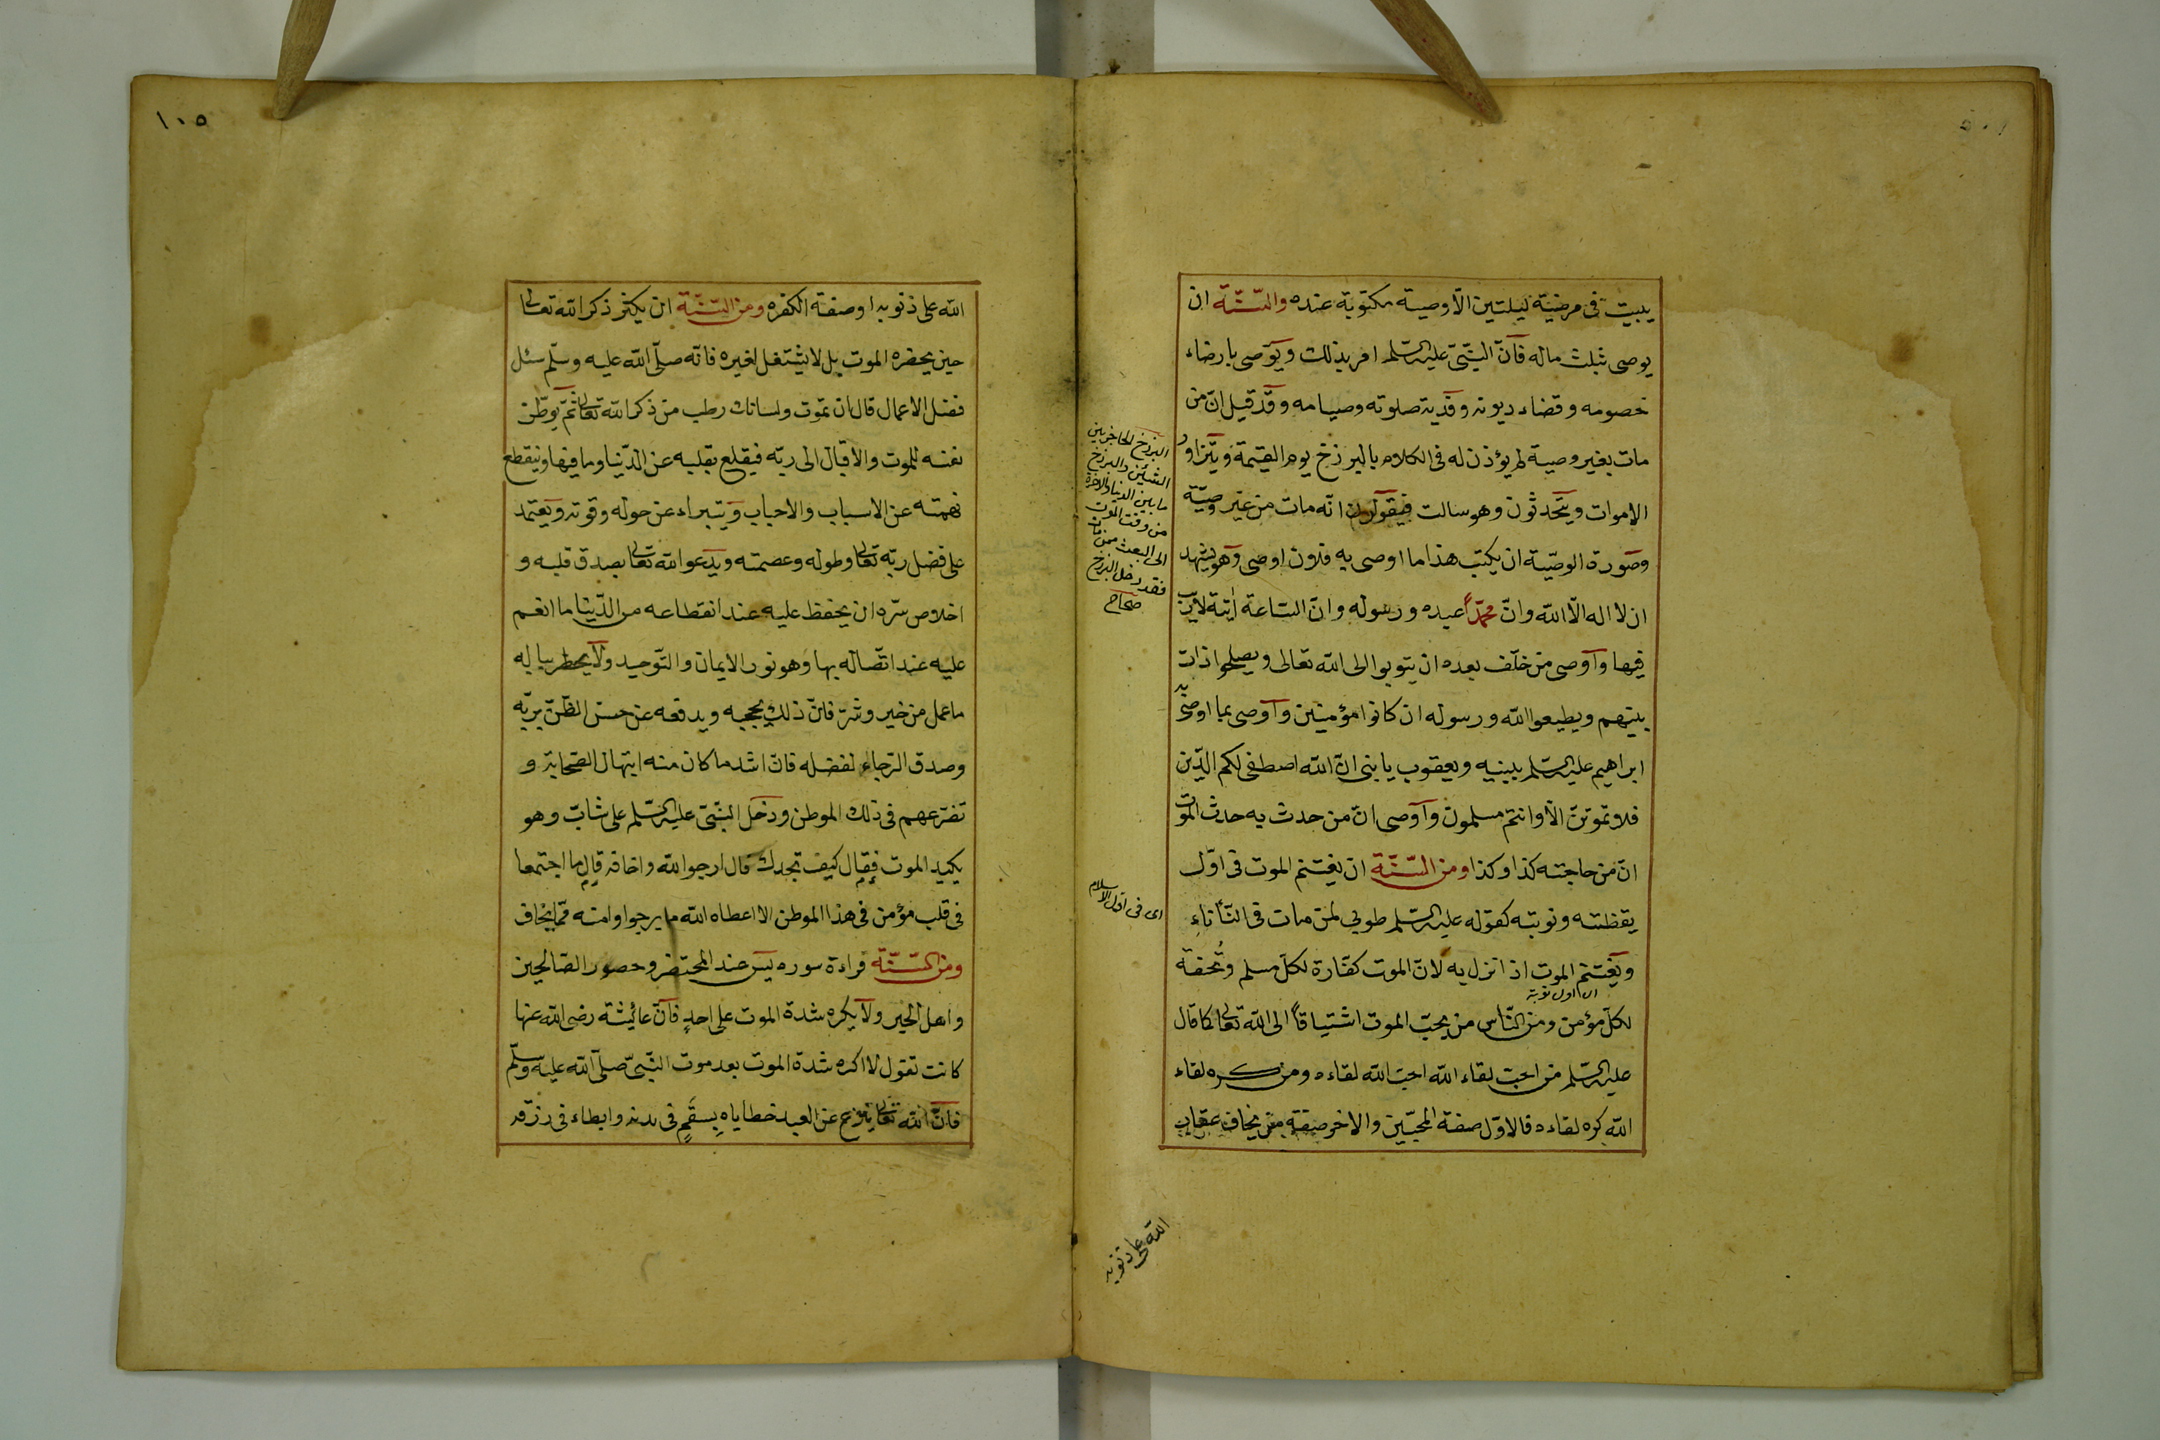 يبيت فى مرضية ليلتين الّا وصية مكتوبة عنده والسّنّة ان
يوصى بثلث ماله فانّ النّبىّ عليه السّلم امر بذلك ويوصى بارضاء
خصومه وقضاء ديونه وفدية صلوته وصيامه وقد قيل انّ من
مات بغير وصية لم يؤذن له فى الكلام بالبرزخ يوم القيمة ويتزاور
الاموات ويتحدثون وهو ساكت فيقولون انّه مات من غير وصيّة
وصورة الوصيّة ان يكتب هذا ما اوصى به فلان اوصى وهو يشهد
ان لا اله الّا الله وانّ محمّداً عبده ورسوله وانّ السّاعة اٰتية لاريب
فيها واوصى من خلّف بعده ان يتوبوا الى الله تعالى ويصلحوا ذات
بينهم ويطيعوا الله ورسوله ان كانوا مؤمنين واوصى بما اوصى به
ابراهيم عليه السّلم ببنيه ويعقوب يا بنى انّ الله اصطفى لكم الدّين
فلا تموتنّ الّا وانتم مسلمون واوصى ان من حدث به حدث الموت
انّ من حاجته كذا وكذا ومن السّنّة ان يغتنم الموت فى اوّل
يقظته ونوبته كقوله عليه السّلم طوبى لمن مات فى النّأناءِ
ويغتنم الموت اذ انزل به لانّ الموت كفّارة لكلّ مسلم وتُحفة
اى اول نوبته
لكلّ مؤمن ومن النّاس من يحبّ الموت اشتياقاً الى الله تعالى كما قال
عليه السّلم من احبّ لقاء الله احبّ الله لقاءه ومن كره لقاء
الله كره لقاءه فالاوّل صفة المحبّين والاخر صفة من يخاف عقاب
البرزخ الحاجز بين
الشيئين والبرزخ
ما بين الدنيا والاخرة
من وقت الموت
الى البعث فمن مات
فقد دخل البرزخ
صحاح
اى فى اول الاسلام
الله على ذنوبه
١٠٥
الله على ذنوبه او صفة الكفره ومن السّنّة ان يكثر ذكر الله تعالى
حين يحضره الموت بل لا يشتغل لغيره فانّه صلّى الله عليه وسلّم سئل
فضل الاعمال قال ان تموت ولسانك رطب من ذكر الله تعالى ثمّ يوطّن
نفسه للموت والاقبال الى ربّه فيقلع بقلبه عن الدّنيا وما فيها وينقطع
نهمته عن الاسباب والاحباب ويتبراء عن حوله وقوته ويعتمد
على فضل ربّه تعالى وطوله وعصمته ويدعو الله تعالى بصدق قلبه و
اخلاص سرّه ان يحفظ عليه عند انقطاعه من الدّنيا ما انعم
عليه عند اتّصاله بها وهو نور الايمان والتّوحيد ولا يخطر بباله
ما عمل من خير وشرّ فانّ ذلك يحجبه ويدفعه عن حسن الظّنّ بربّه
وصدق الرّجاءِ لفضله فانّ اشد ما كان منه ابتهال الصّحابة و
تضرّعهم فى ذلك الموطن ودخل النّبىّ عليه السّلم على شابّ وهو
يكيد الموت فقال كيف تجدك قال ارجو الله واخافه قال ما اجتمعا
فى قلب مؤمن فى هذا الموطن الا اعطاه الله ما يرجو وامنه ممّا يخاف
ومن السّنّة قراءة سوره يس عند المحتضر وحضور الصّالحين
واهل الخير ولا يكره شدة الموت على احدٍ فانّ عائيشة رضى الله عنها
كانت تقول لا اكره شدة الموت بعد موت النّبىّ صلّى الله عليه وسلّم
فانّ الله تعالى ينزع عن العبد خطاياه بِسقَمٍ فى بدنه وابطاء فى رزقه